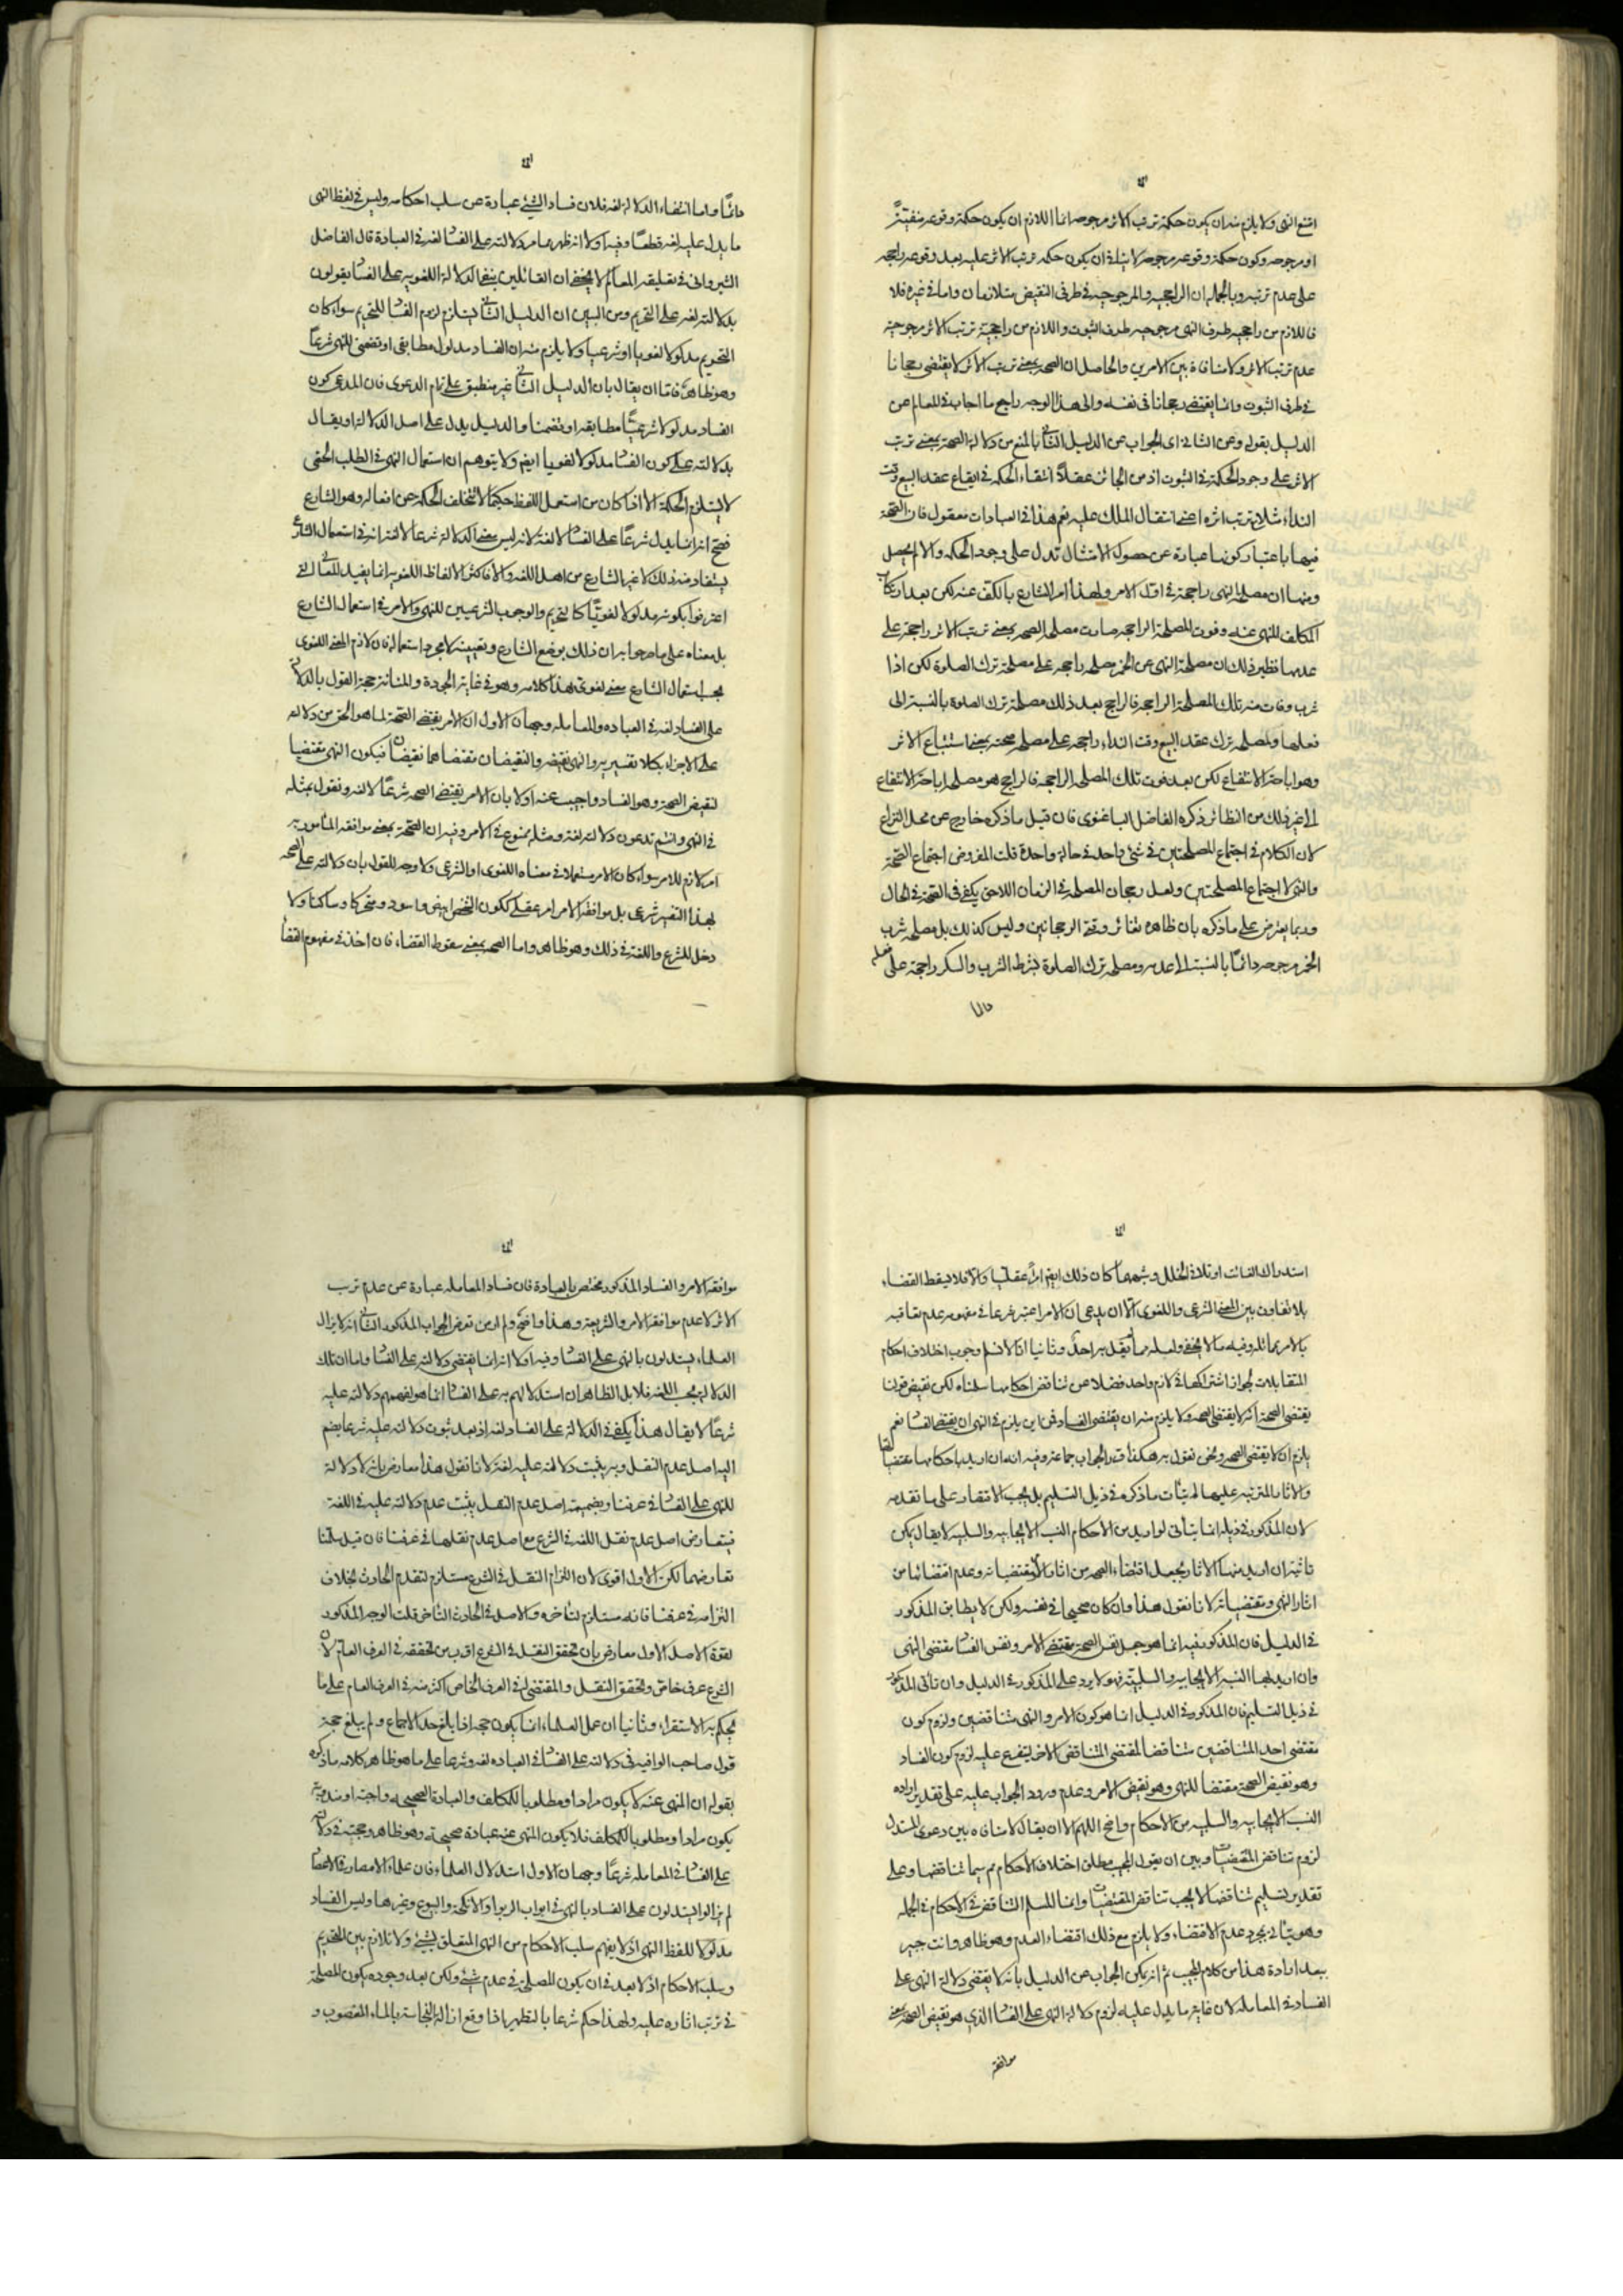 امتنع النهى ولا يلزم منه ان يكون حكمة ترتب الاثر مرجوحه انما اللازم ان يكون حكمة وقوعه منفية
او مرجوحه وكون حكمة وقوعه مرجوحه لا ينافى ان يكون حكمه ترتب الاثر عليه بعد وقوعه راجحه
على عدم ترتبه وبالجمله ان الراجحيه والمرجوحيه فى طرفى النقيض متلازمان واما فى غيره فلا
فاللازم من راجحيه طرف النهى مرجوحيه طرف الثبوت واللازم من راجحية ترتب الاثر مرجوحية
عدم ترتب الاثر ولا منافاة بين الامرين والحاصل ان الصحه بمعنى ترتب الاثر لا يقتضى رجحانا
فى طرف الثبوت وانما يقتضى رجحانا فى نفسه والى هذا الوجه راجع ما اجاب فى المعالم عن
الدليل بقوله وعن الثانى اى الجواب عن الدليل الثانى بالمنع من دلالة الصحة بمعنى ترتب
الاثر على وجود الحكمة فى الثبوت اذ من الجائز عقلا انتفاء الحكمه فى ايقاع عقد البيع وقت
النداء مثلا وترتب اثره اعنى انتقال الملك عليه نعم هذا فى العبادات معقول فان الصحة
فيها باعتبار كونها عبارة عن حصول الامتثال تدل على وجود الحكمه والا لم يحصل
ومنها ان مصلحه النهى راجحة فى اول الامر ولهذا امر الشارع بالكف عنه لكن بعد ارتكاب
المكلف للمنهى عنه وفوت المصلحة الراجحه صارت مصلحه الصحه بمعنى ترتب الاثر راجحة على
عدمها نظير ذلك ان مصلحة النهى عن الخمر مصلحه راجحه على مصلحة ترك الصلوة لكن اذا
شرب وفات منه تلك المصلحة الراجحه فالراجح بعد ذلك مصلحة ترك الصلوة بالنسبة الى
فعلها ومصلحه ترك عقد البيع وقت النداء راجحه على مصلحه صحته بمعنى استتباع الاثر
وهو اباحة الانتفاع لكن بعد فوت تلك المصلحه الراجحه فالراجح هو مصلحه اباحة الانتفاع
الى غير ذلك من النظائر ذكره الفاضل الباغنوى فان قيل ما ذكره خارج عن محل النزاع
لان الكلام فى اجتماع المصلحتين فى شئ واحد فى حالة واحدة قلت المفروض اجتماع الصحة
والنهى لا اجتماع المصلحتين ولعل رجحان المصلحه فى الزمان اللاحق يكفى فى الصحة فى الحال
وربما يعترض على ما ذكره بان ظاهره تغائر وقتى الرجحانين وليس كذلك بل مصلحه شرب
الخمر مرجوحه دائما بالنسبة الى عدمه ومصلحه ترك الصلوة بشرط الشرب والسكر راجحة على فعلها
دائما
دائما واما انتفاء الدلالة لغه فلان فساد الشئ عبارة عن سلب احكامه وليس فى لفظ النهى
ما يدل عليه لغه قطعا وفيه اولا انه ظهر مما مر دلالته على الفسا لغه فى العبادة قال الفاضل
الشيروانى فى تعليقه المعالم لا يخفى ان القائلين بنفى الدلالة اللغويه على الفسا يقولون
بدلالته لغه على التحريم ومن البين ان الدليل الثانى يستلزم لزوم الفسا للتحريم سواء كان
التحريم مدلولا لغويا او شرعيا ولا يلزم منه ان الفساد مدلول مطابقى او تضمنى للنهى شرعا
وهو ظاهر فاما ان يقال بان الدليل الثانى غير منطبق على تمام الدعوى فان المدعى كون
الفساد مدلولا شرعيا مطابقه او تضمنا والدليل يدل على اصل الدلالة او يقال
بدلالته على كون الفسا مدلولا لغويا ايضا ولا يتوهم ان استعمال النهى فى الطلب الحتمى
لا يستلزم الحكمة الا اذا كان من استعمل اللفظ حكيما لا تتخلف الحكمه عن افعاله وهو الشارع
فصح انه انما يدل شرعا على الفسا لا لغة لانه ليس معنى الدلالة شرعا لا لغة انه فى استعمال الشارع
يستفاد منه ذلك لا غير الشارع من اهل اللغه والا فاكثر الالفاظ اللغويه انما يفيد المعانى التى
اعترفوا بكونه مدلولا لغويا كالتحريم والوجوب الشرعيين للنهى والامر فى استعمال الشارع
بل معناه على ما صرحوا به ان ذلك بوضع الشارع وتعيينه لا بمجرد استعماله فان لازم المعنى اللغوى
بحسب استعمال الشارع معنى لغوى هذا كلامه وهو فى غاية الجودة والمتانة حجة القول بالدلالة
على الفساد لغه فى العباده والمعامله وجهان الاول ان الامر يقتضى الصحة لما هو الحق من دلالته
على الاجزاء بكلا تفسيريه والنهى نقيضه والنقيضان مقتضاهما نقيضان فيكون النهى مقتضيا
لنقيض الصحة وهو الفساد واجيب عنه اولا بان الامر يقتضى الصحه شرعا لا لغه ونقول بمثله
فى النهى وانتم تدعون دلالته لغة ومثله ممنوع فى الامر وفيه ان الصحة بمعنى موافقه المأمور به
امر لازم للامر سواء كان الامر مستعملا فى معناه اللغوى او الشرعى ولا وجه للقول بان دلالته على الصحه
بهذا التفسير شرعى بل موافقة الامر امر عقلى ككون الشخص ابيض واسود ومتحركا وساكنا ولا
دخل للشرع واللغة فى ذلك وهو ظاهر واما الصحه بمعنى سقوط القضاء فان اخذ فى مفهوم القضا
استدراك الفائت او تلافى الخلل وشبههما كان ذلك ايضا امرا عقليا والا فلا يسقط القضاء
بلا تفاوت بين المعنى الشرعى واللغوى الا ان يدعى ان الامر اعتبر شرعا فى مفهومه عدم تعاقبه
بالامر بمماثله وفيه ما لا يخفى ولعله مما لم يقل به احد وثانيا انا لا نسلم وجوب اختلاف احكام
المتقابلات لجواز اشتراكها فى لازم واحد فضلا عن تناقض احكامها سلمناه لكن نقيض قولنا
يقتضى الصحة انه لا يقتضى الصحه ولا يلزم منه ان يقتضى الفساد فمن اين يلزم فى النهى ان يقتضى الفسا نعم
يلزم ان لا يقتضى الصحه ونحن نقول به هكذا قرر الجواب جماعة وفيه انه ان اريد باحكامها مقتضياتها
والاثار المترتبه عليها لم يتأت ما ذكره فى ذيل التسليم بل يجب الاقتصار على ما تقدمه
لان المذكور فى ذيله انما يتأتى لو اريد من الاحكام النسب الايجابيه والسلبيه لا يقال يمكن
تأتيه ان اريد منها الاثار بجعل اقتضاء الصحه من اثار الامر ومقتضياته وعدم اقتضائها من
اثار النهى ومقتضياته لانا نقول هذا وان كان صحيحا فى نفسه ولكن لا يطابق المذكور
فى الدليل فان المذكور فيه انما هو جعل نفس الصحة مقتضى الامر ونفس الفسا مقتضى النهى
وان اريد بها النسب الايجابيه والسلبية فهو لا يرد على المذكور فى الدليل وان تأتى المذكور
فى ذيل التسليم فان المذكور فى الدليل انما هو كون الامر والنهى متناقضين ولزوم كون
مقتضى احد المتناقضين متناقضا لمقتضى المتناقض الاخر ليتفرع عليه لزوم كون الفساد
وهو نقيض الصحة مقتضا للنهى وهو نقيض الامر وعدم ورود الجواب عليه على تقدير اراده
النسب الايجابيه والسلبيه من الاحكام واضح اللهم الا ان يقال لا منافاه بين دعوى المستدل
لزوم تناقض المقتضيات وبين ان يقول المجيب مطلق اختلاف الاحكام ثم سيما تناقضها وعلى
تقدير تسليم تناقضها لا يجب تناقض المقتضيات وانما المسلم التناقض فى الاحكام فى الجمله
وهو يتأتى بمجرد عدم الاقتضاء ولا يلزم مع ذلك اقتضاء العدم وهو ظاهر وانت خبير
ببعد ارادة هذا من كلام المجيب ثم انه يمكن الجواب عن الدليل بانه لا يقتضى دلالة النهى على
الفساد فى المعامله لان غاية ما يدل عليه لزوم دلالة النهى على الفسا الذى هو نقيض الصحه بمعنى
موافقة
موافقة الامر والفساد المذكور مختص بالعبادة فان فساد المعامله عبارة عن عدم ترتب
الاثر لا عدم موافقة الامر والشريعة وهذا واضح ولم ار من تعرض للجواب المذكور الثانى انه لا يزال
العلماء يستدلون بالنهى على الفسا وفيه اولا انه انما يقتضى دلالته على الفسا واما ان تلك
الدلالة بحسب اللغه فلا بل الظاهر ان استدلالهم به على الفسا انما هو لفهمهم دلالته عليه
شرعا لا يقال هذا يكفى فى الدلالة على الفساد لغه اذ بعد ثبوت دلالته عليه شرعا يضم
اليه اصل عدم النقل وبه يثبت دلالته عليه لغة لانا نقول هذا معارض بانه لا دلالة
للنهى على الفسا فى عرفنا وبضميمة اصل عدم النقل يثبت عدم دلالته عليه فى اللغة
فيتعارض اصل عدم نقل اللغه فى الشرع مع اصل عدم نقلها فى عرفنا فان قيل سلمنا
تعارضهما لكن الاول اقوى لان التزام النقل فى الشرع مستلزم لتقدم الحادث بخلاف
التزامه فى عرفنا فانه مستلزم لتأخره والاصل فى الحادث التأخر قلت الوجه المذكور
لقوة الاصل الاول معارض بان تحقق النقل فى الشرع اقرب من تحققه فى العرف العام لان
الشرع عرف خاص وتحقق النقل والمقتضى له فى العرف الخاص اكثر منه فى العرف العام على ما
يحكم به الاستقراء وثانيا ان عمل العلماء انما يكون حجه اذا بلغ حد الاجماع ولم يبلغ حجة
قول صاحب الوافيه فى دلالته على الفسا فى العباده لغه وشرعا على ما هو ظاهر كلامه ما ذكره
بقوله ان المنهى عنه لا يكون مرادا ومطلوبا للمكلف والعبادة الصحيحه واجبة او مندوبة
يكون مرادا ومطلوبا للمكلف فلا يكون المنهى عنه عبادة صحيحة وهو ظاهر وحجته فى دلالته
على الفسا فى المعامله شرعا وجهان الاول استدلال العلماء فان علماء الامصار فى الاعصا
لم يزالوا يستدلون على الفساد بالنهى فى ابواب الربوا والانكحة والبيوع وغيرها وليس الفساد
مدلولا للفظ النهى اذ لا يفهم سلب الاحكام من النهى المتعلق بشئ ولا تلازم بين التحريم
وسلب الاحكام اذ لا بعد فى ان يكون المصلحة فى عدم شئ ولكن بعد وجوده يكون المصلحة
فى ترتب اثاره عليه ولهذا حكم شرعا بالتطهير اذا وقع ازالة النجاسة بالماء المغصوب و